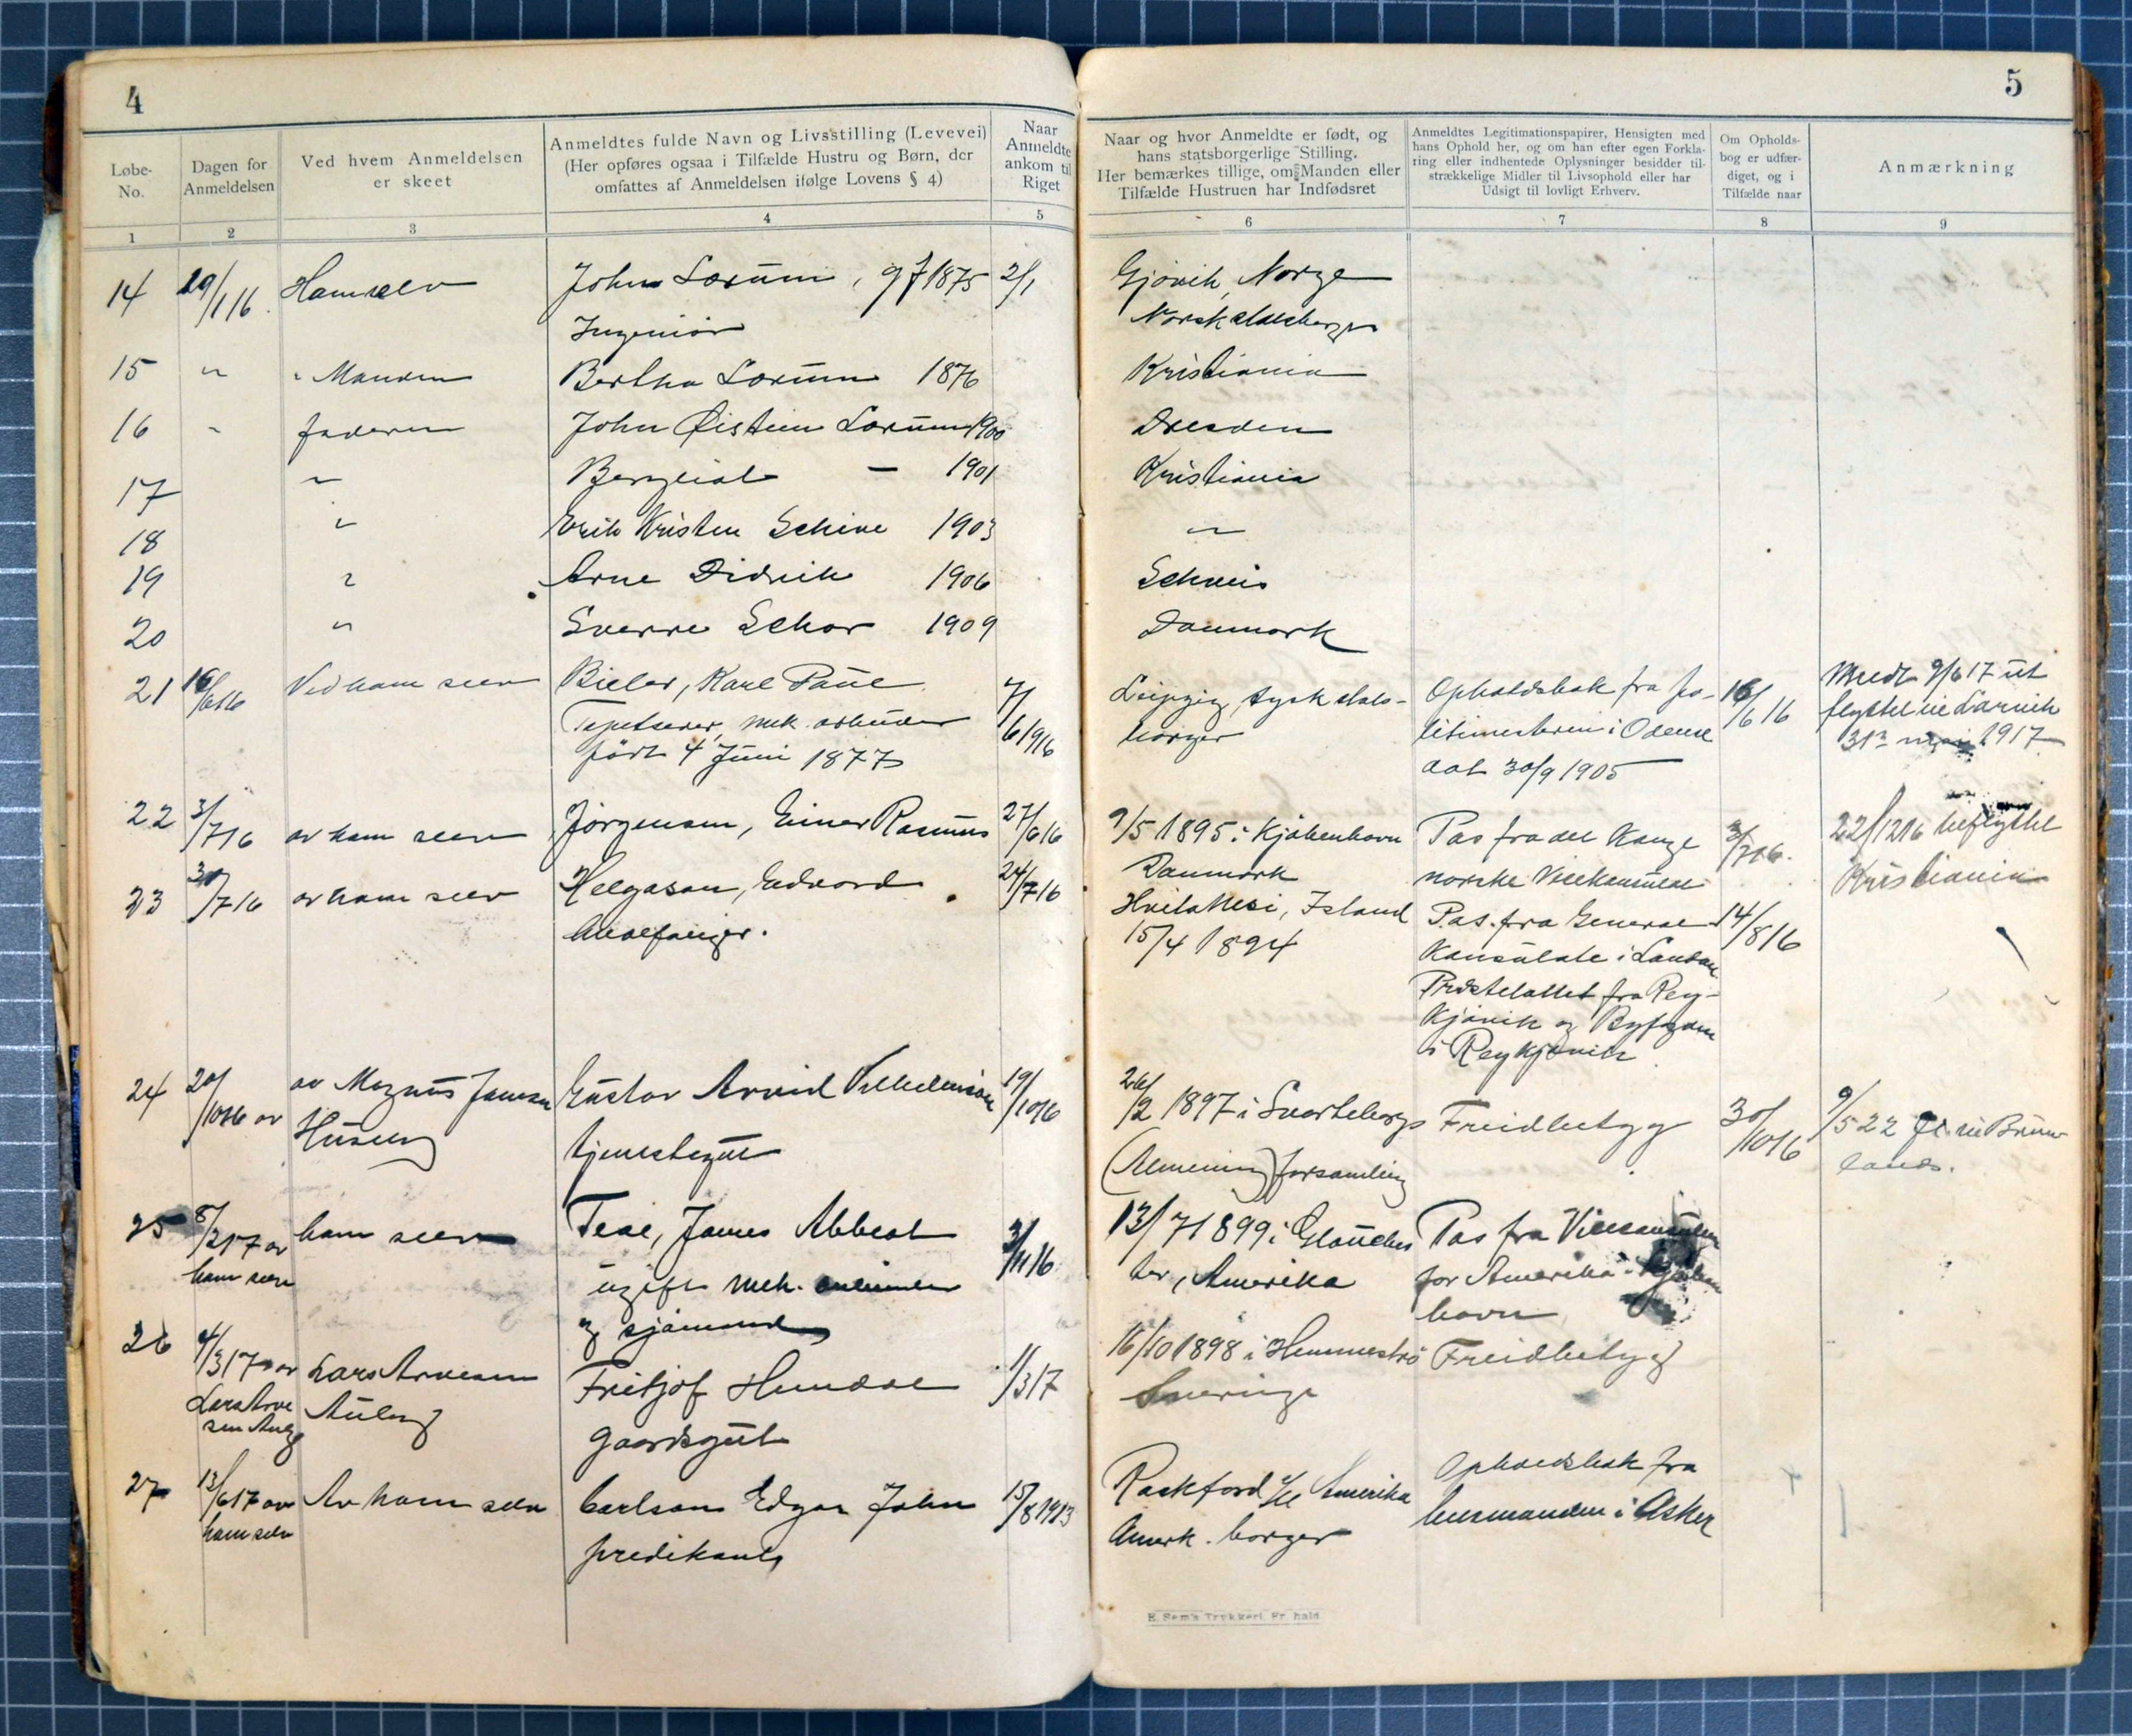 4
Løbe-No.
Dagen for Anmeldelsen
Ved hvem Anmeldelsen er skeet
Anmeldtes fulde Navn og Livsstilling (Levevei)
(Her opføres ogsaa i Tilfælde Hustru og Børn, der
omfattes af Anmeldelsen ifølge Lovens § 4)
Naar
Anmeldte
ankom til
Riget
1 2 3 4 5
14 29/1 16. Ham selv John Lorum, gf 1875 2/1
Ingeniør
15 " " Manden Bertha Lorum 1876
16 " faderen John Øistein Lorum 1900
17 " Bergliot — 1901
18 " Erik Kristen Schive 1903
19 " Arne Didrik 1906
20 " Sverre Schor 1909
21 16/6 16 Ved ham selv Bieler, Karl Paul 7/6 1916
Tapetserer, mek. arbeider
født 4 Juni 1877
22 3/7 16 av ham selv Jørgensen, Einer Rasmus 27/6 16
23 /7 16 av ham selv Helgason, Edvard 24/7 16
Hvalfanger.
24 20/10 16 av av Magnus Jansen Gustav Arvid Vilhelmsson 19/10 16
Huseby tjenestegut
25 8/2 17 av ham selv Teal, James Abbeot /11 16
ham selv ugift mek. arbeider
og sjømand
26 4/3 17 av Lars Arvesen Fritjof Hendal 1/3 17
Lars Arve
sen Auleg Auleg gaardsgut
27 13/6 17 av Av ham selv Carlson Edgar John 15/8 1913
ham selv predikant
5
Naar og hvor Anmeldte er født, og
hans statsborgerlige Stilling.
Her bemærkes tillige, om Manden eller
Tilfælde Hustruen har Indfødsret
Anmeldtes Legitimationspapirer, Hensigten med
hans Ophold her, og om han efter egen Forkla-
ring eller indhentede Oplysninger besidder til-
strækkelige Midler til Livsophold eller har
Udsigt til lovligt Erhverv.
Om Opholds-
bog er udfær-
diget, og i
Tilfælde naar
Anmærkning
6 7 8 9
Gjøvik, Norge
Norsk statsborger
Kristiania
Dresden
Kristiania
"
Schweis
Danmark
Leipzig, tysk stats-
borger
Opholdsbok fra po-
litimesteren i Odense
dat 30/9 1905
16/6 16
Meldt 9/6 17 ut
flyttet til Larvik
31te mai 1917
9/5 1895 i Kjøbenhavn
Danmark
Pas fra det Konge
norske Vicekonsulat
3/7 16.
22/12 16 utflyttet
Kristiania
Hvitanesi, Island
15/4 1894
Pas fra General
Konsulate i London
Presteattest fra Rey-
kjavik og Byfogden
i Reykjavik
14/8 16
26/2 1897 i Svarteborgs
(Almening) forsamling
Freidbetyg
30/10 16
9/5 22 fl. til Brunl
lanes.
13/7 1899 i Glouches
ter, Amerika
Pas fra Vicekonsulen
for Amerika i Kjøben
havn
16/10 1898 i Hemmestrø
Sverige
Freidbetyg
Rockford Ill Amerika
Amerk. borger
Opholdsbok fra
lensmanden i Asker
E. Sem's Trykkeri, Fr.hald